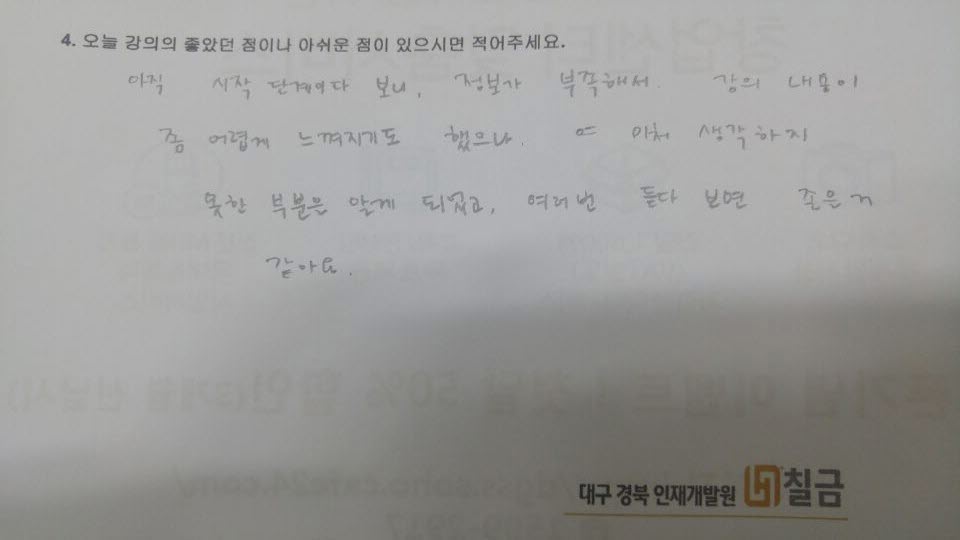 4. 오늘 강의의 좋았던 점이나 아쉬운 점이 있으시면 적어주세요.
아직 시작 단계이다 보니, 정보가 부족해서 강의 내용이
좀 어렵게 느껴지기도 했으나. 또 미처 생각하지
못한 부분은 알게 되었고, 여러번 듣다 보면 좋은거
같아요.
대구 경북 인재개발원 칠금